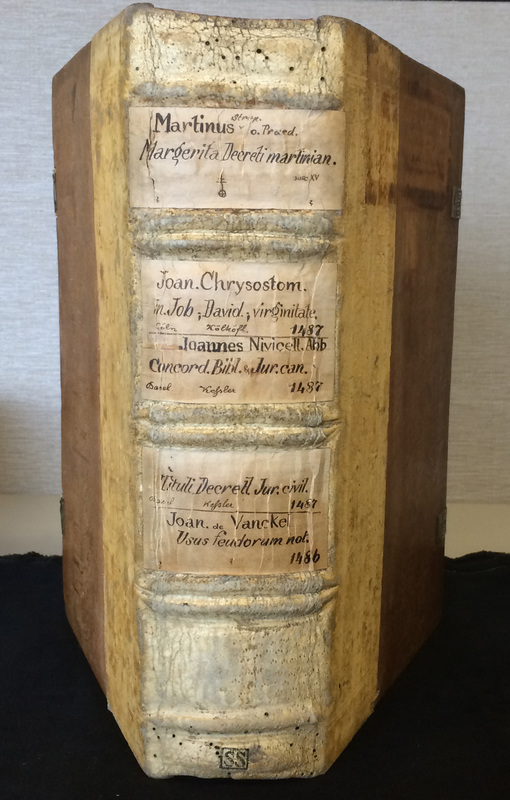 Martinus Strep. o. Praed.
Margerita Decreti martinian.
saec XV
Joan. Chrysostom.
in Job, David, virginitate.
Cöln Kölhoff. 1487
Joannes Nivicell. Abb
Concord. Bibl. & Jur. can.
Basel Kessler 1487
Tituli Decretl. Jur. civil.
Basel Kessler 1487
Joan. de Vanckel
Usus feudorum not.
1486
SS